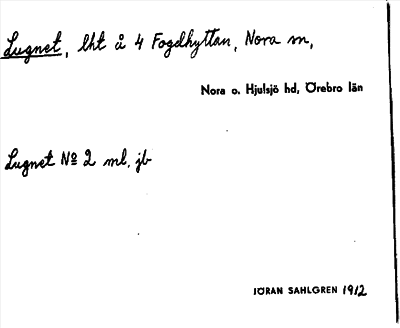 Lugnet, lht å 4 Fogdhyttan, Nora sn,
Nora o. Hjulsjö hd, Örebro län
Lugnet Nº 2 ml. jb
JÖRAN SAHLGREN 1912